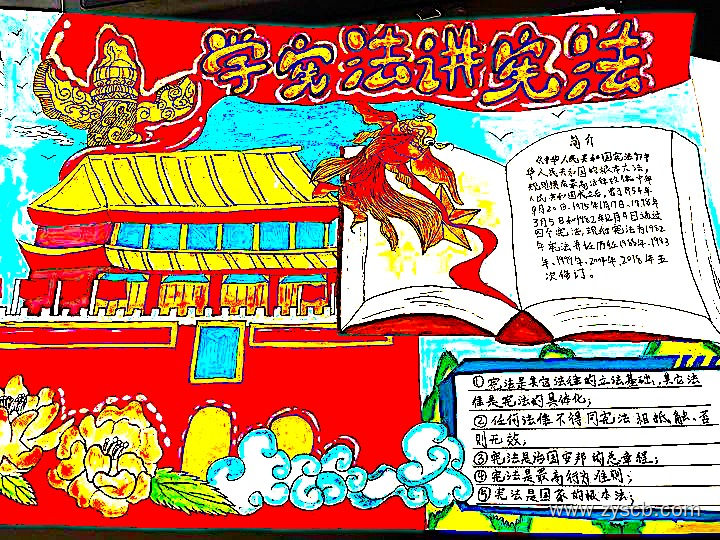 学宪法讲宪法
简介
《中华人民共和国宪法》中
华人民共和国的根本大法,
规定拥有最高法律效力。中华
人民共和国成立后,曾于1954年
9月20日、1975年1月17日、1978年
3月5日和1982年12月4日通过
四个宪法,现行宪法为1982
年宪法并经历经1988年、1993
年、1999年、2004年、2018年五
次修订。
①宪法是其它法律的立法基础,其它法
律是宪法的具体化;
②任何法律不得同宪法相抵触、否
则无效;
③宪法是治国安邦的总章程;
④宪法是最高行为准则;
⑤宪法是国家的根本法;
www.zyscb.com